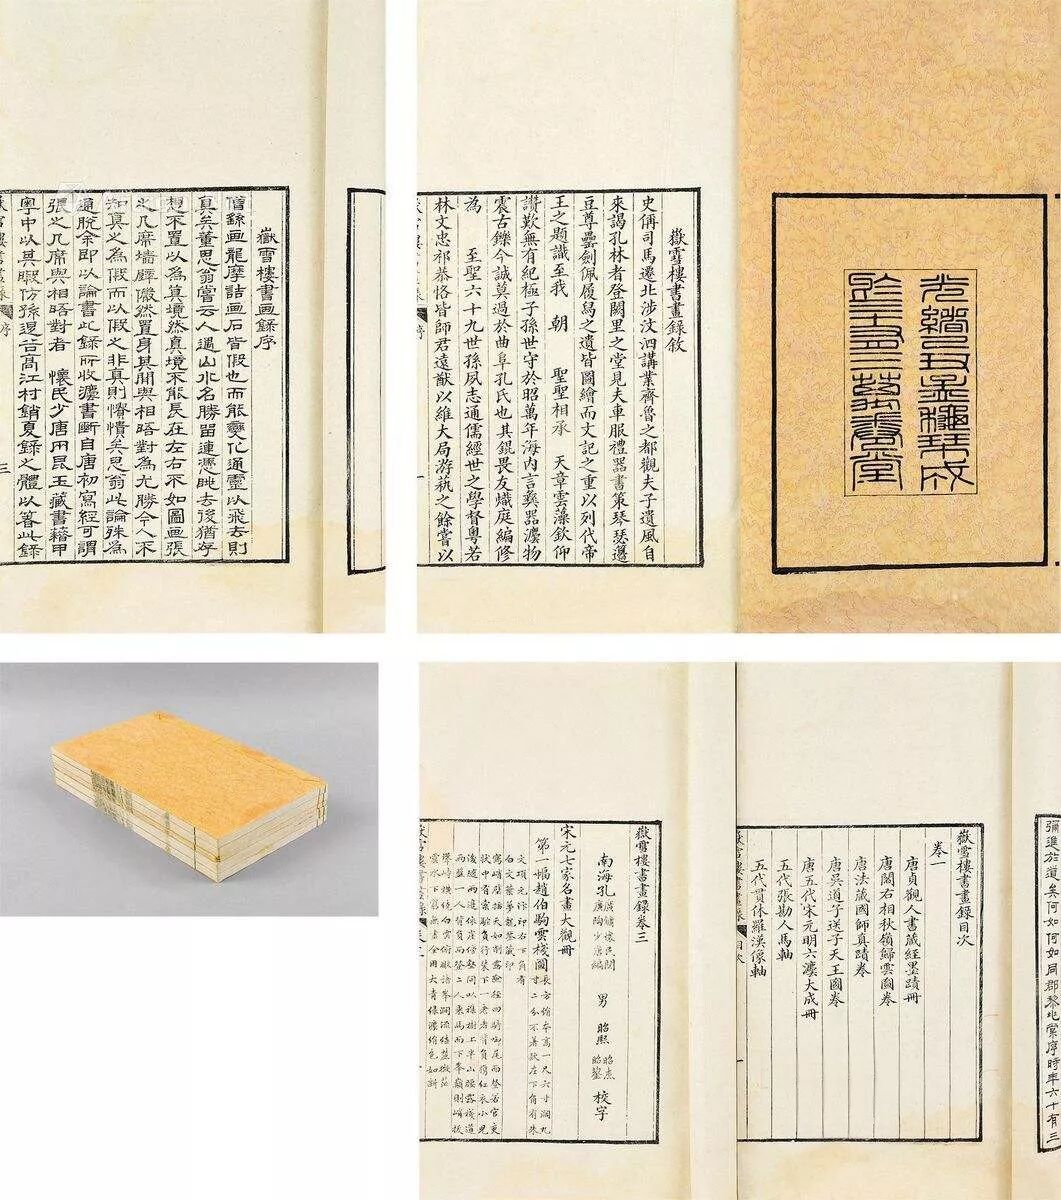 嶽雪樓書画錄序
僧繇画龍摩詰画石皆假也而能變化通靈以飛去則
真矣董思翁嘗云人遇山水名勝留連憑眺去後猶存
想不置以為真境然真境不能長在左右不如圖画張
之几席墻壁儼然置身其間與相晤對為尤勝今人不
知真之為假而以假之非真則憒憒矣思翁此論殊為
通脫余即以論書此錄所收灋書斷自唐初寫經可謂
張之几席與相晤對者 懷民少唐用昆玉藏書藉甲
粵中以其暇仿孫退谷高江村銷夏錄之體以箸此錄
序
三
光緒己丑孟穐栞成
三十有三萬卷堂
嶽雪樓書畫錄敘
史稱司馬遷北涉汶泗講業齊魯之都觀夫子遺風自
來謁孔林者登闕里之堂見夫車服禮器書策琴瑟籩
豆尊罍劍佩履舄之遺皆圖繪而文記之重以列代帝
王之題識至我 朝 聖聖相承 天章雲藻欽仰
讚歎無有紀極子孫世守於昭萬年海內言彝器灋物
震古鑠今誠莫過於曲阜孔氏也其錕畏友熾庭編修
為 至聖六十九世孫夙志通儒經世之學督粵若
林文忠祁恭恪皆師君遠猷以維大局游蓺之餘嘗以
序
一
彌進於道矣何如何如同郡黎兆棠序時年六十有三
嶽雪樓書畫錄目次
卷一
唐貞觀人書藏經墨蹟冊
唐閻右相秋嶺歸雲圖卷
唐吳道子送子天王圖卷
唐法藏國師真蹟卷
唐五代宋元明六灋大成冊
五代張勘人馬軸
五代貫休羅漢像軸
目次
一
嶽雪樓書畫錄卷三
南海孔廣鏞懷民閱
廣陶少唐編
男 昭熙 昭杰 昭鋆 校字
宋元七家名畫大觀冊
第一幅趙伯駒雲棧圖